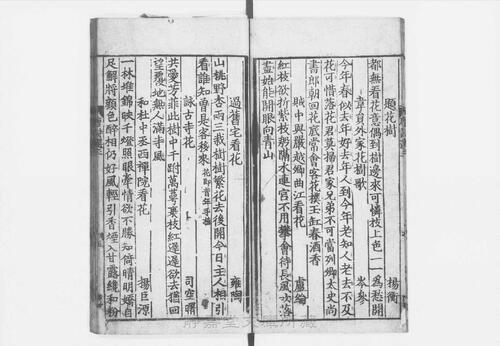 題花樹 楊衡
都無看花意偶到樹邊來可憐枝上色一一為愁開
韋員外家花樹歌 岑參
今年春似去年好去年人到今年老知人老去不及
花可惜落花君莫掃君家兄弟不可當列卿太史尚
書郎朝回花底常會客花撲玉缸春酒香
賊中與嚴越卿曲江看花 盧綸
紅枝欲折紫枝殷隔水連宮不用攀會待長風吹落
盡始能開眼向青山
過舊宅看花 雍陶
山桃野杏兩三栽樹樹繁花去後開今日主人相引
看誰知曾是客後來
詠古寺花 司空曙
共愛芳菲此樹中千跗萬萼裹枝紅遲遲欲去猶回
望覆地無人滿寺風
和杜中丞西禪院看花 楊巨源
一林堆錦映千燈照眼牽情欲不勝知倚晴明嬌自
足解將顏色醉相仍好風輕引香煙入甘露纔和粉